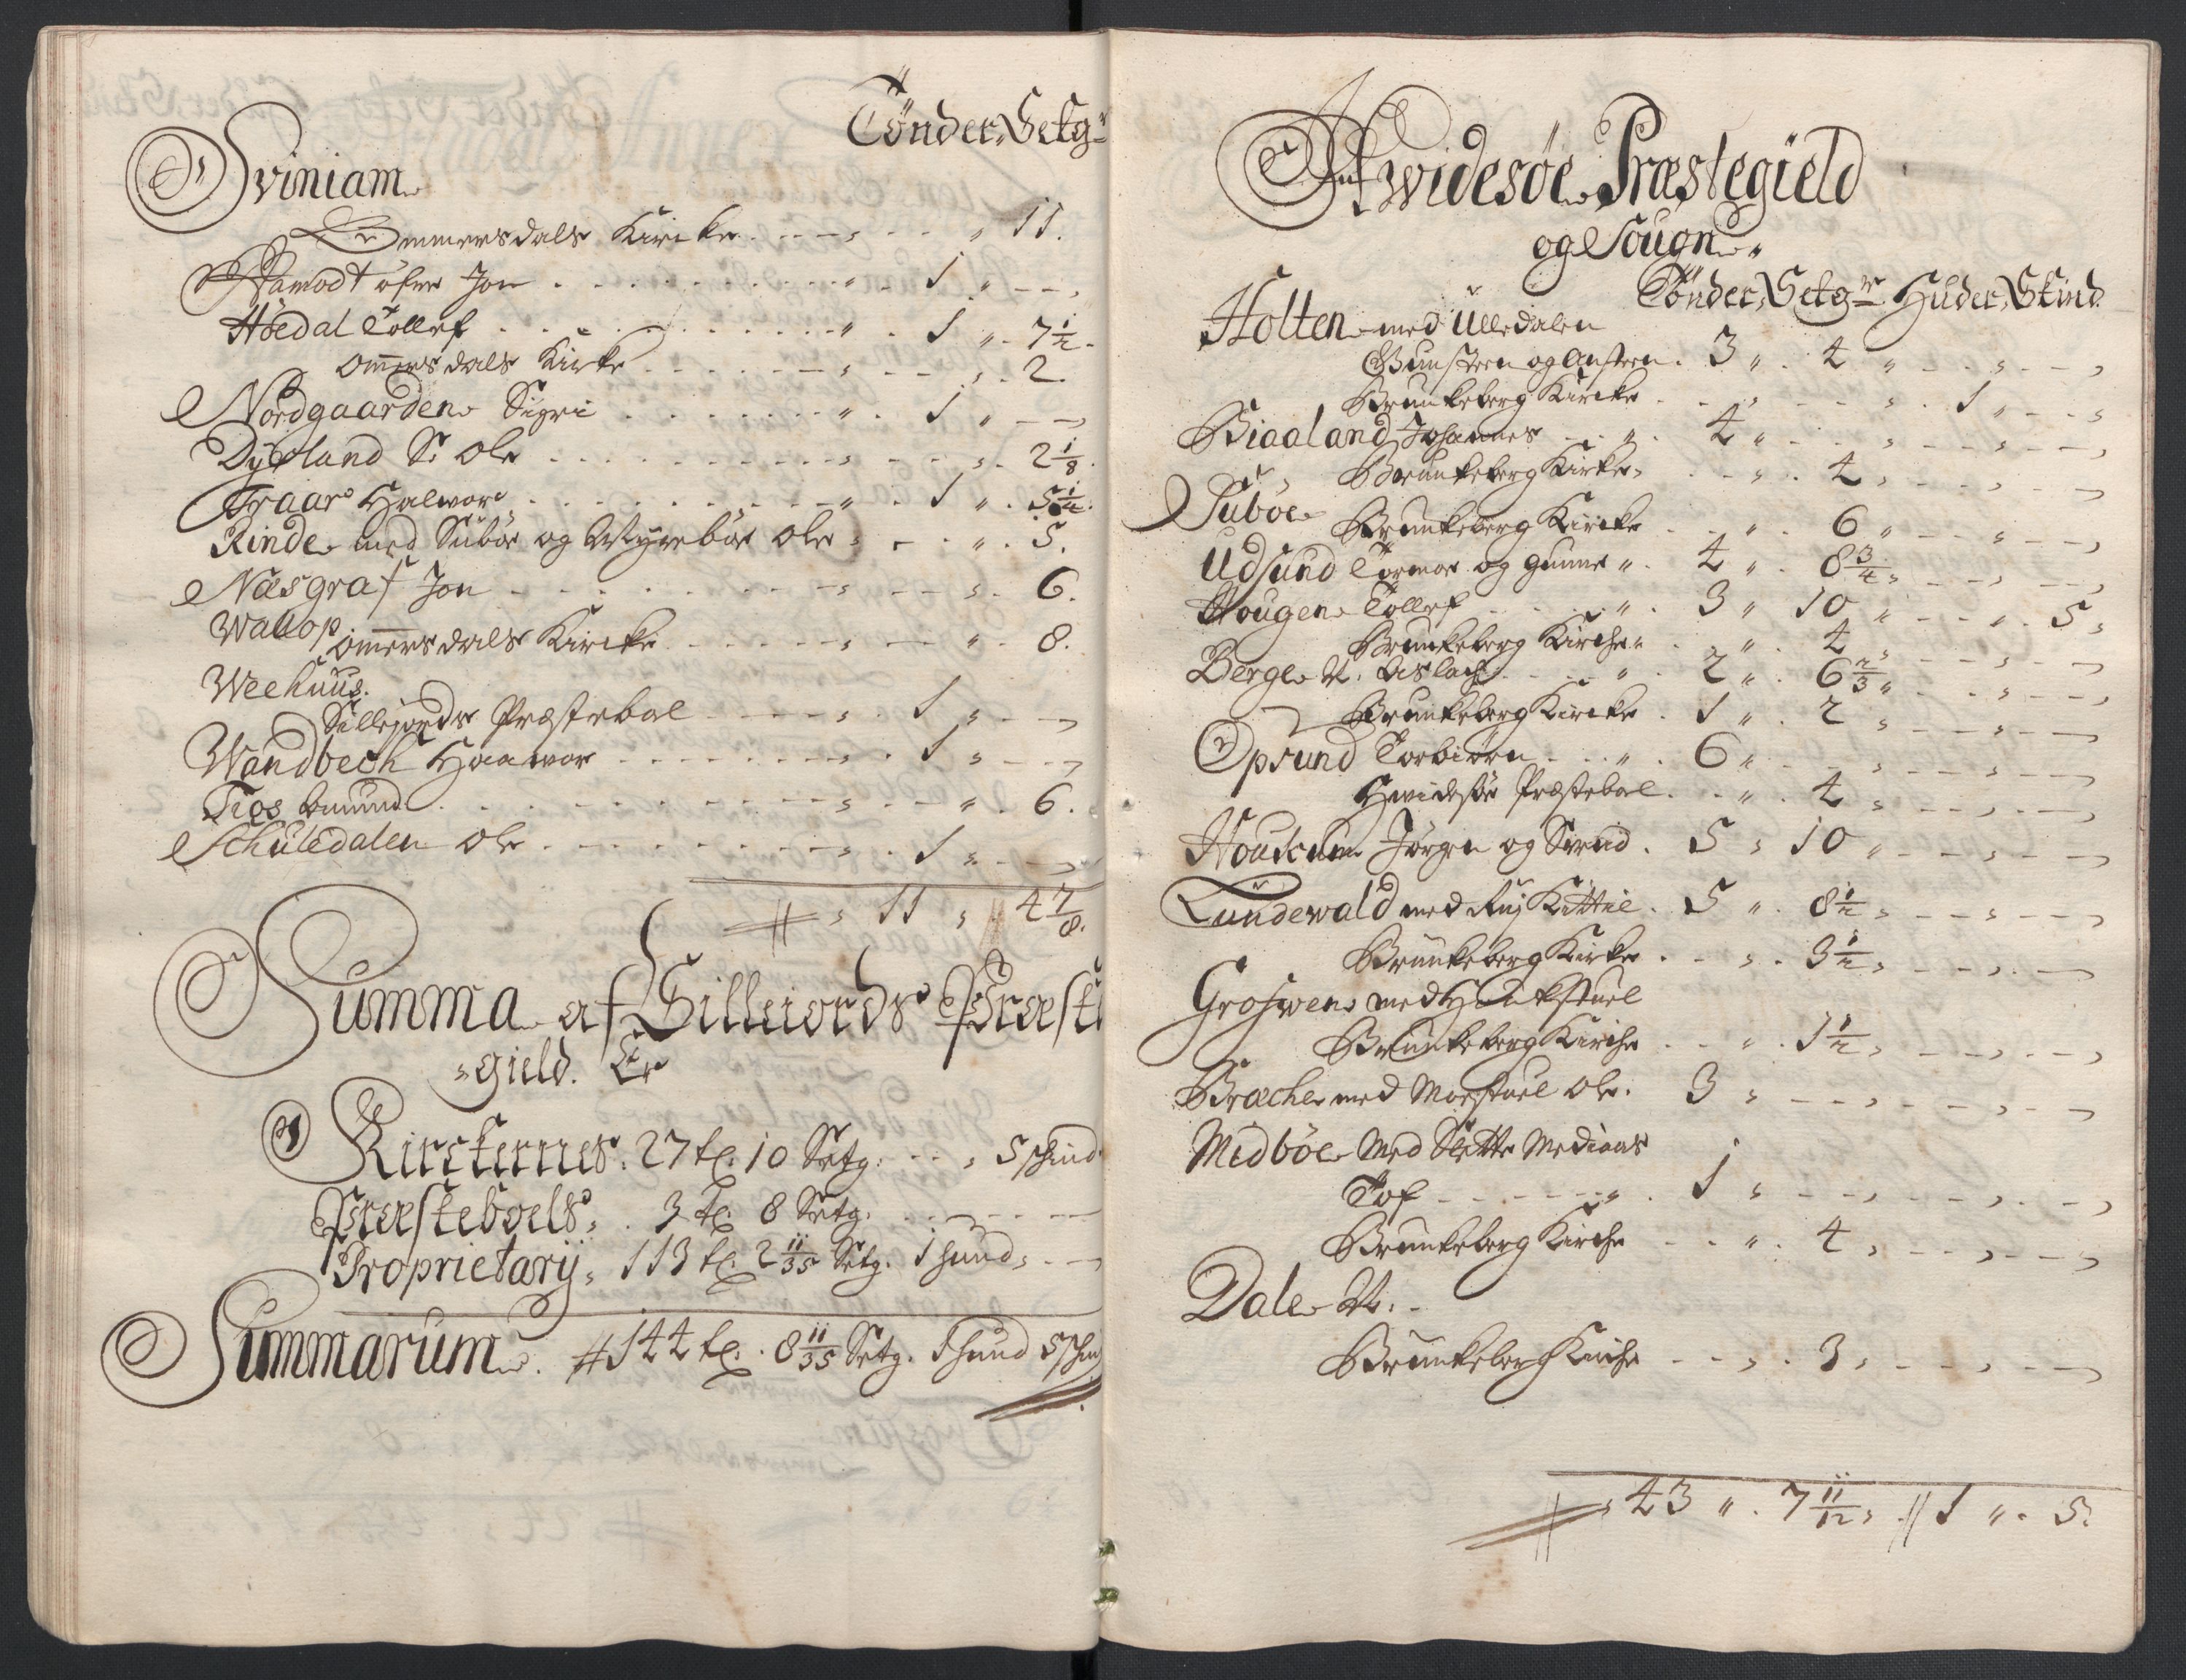 Tønder, Setgr
Sviniam
Ommersdals Kircke - - - „ 11.
Aamodt øfre Jon - - - „ 1 „ - -
Høedal Tollef - - - „ 1 „ 7 1/2
Omersdals Kircke - - - „ 2.
Nordgaarden Sigri - - - „ 1 „ - -
Dyrland S: Ole - - - „ 2 1/8.
Traar Halvor - - - „ 1 „ 5 1/2.
Rinde med Subøe og Myrebøe Ole - - „ 5.
Næsgraf Jon - - - „ 6.
Wallop
Omersdals Kircke - - - „ 8.
Weehuus.
Sillejords Præstebol - - - „ 1 „ - -
Wandbech Haavor - - - „ 1 „ - -
Tios Amund - - - „ 6.
Schuledalen Ole - - - „ 1 „ - -
„ 11 „ 4 7/8.
Summa af Silleiords Præste
gield. Er
Kirckernes. 27 tr. 10 Setg. - - 5 schind
Præsteboels, 3 tr. 8 Setg. - - -
Proprietarij, 113 tr. 2 11/35 Setg. 1 huud, - -
Summarum. 144 tr. 8 11/35 Setg. 1 huud 5 schin
Hwidesøe Præstegield
og Sougn
Tønder, Setgr Huder, Skind
Holten med Ulledalen
Gunsteen og Ansteen. 3 „ 4 „ - -
Brunkeberg Kircke - - - „ 1 „ - -
Biaaland Johannes - - „ 4 „ - - -
Brunkeberg Kircke, - - „ 4, - - -
Subøe
Brunkeberg Kircke - - „ 6 „ - -
Udsund Tormoe og Gunne „ 4 „ 8 3/4, - - -
Hougen Tollef - - - „ 3 „ 10 „ - - „ 5,
Brunkeberg Kirche - - „ 4, - - -
Berge N. Aslach - - „ 2 „ 6 2/3 „ - - -
Brunkeberg Kircke . 1 „ 2, - - -
Opsund Torbiørn - - „ 6 „ - - -
Hvidesøe Præstebol. - - „ 4, - - -
Houscum Jørgen og Svend. 5, 10 „ - - -
Lundewald med Ruj Kittil. 5 „ 8 1/2, - - -
Brunkeberg Kircke - - „ 3 1/2, - - -
Groswen med Huckstuel
Brunkeberg Kirche - - „ 1 1/2, - - -
Bræche med Moestuel Ole. 3, - - -
Midbøe Med Slette Mediaas
Tof - - - „ 1, - - -
Brunkeberg Kirche - - „ 4, - - -
Dale N. -
Brunkeberg Kirche - - „ 3, - - -
„ 43 „ 7 11/12, 1 „ 5.